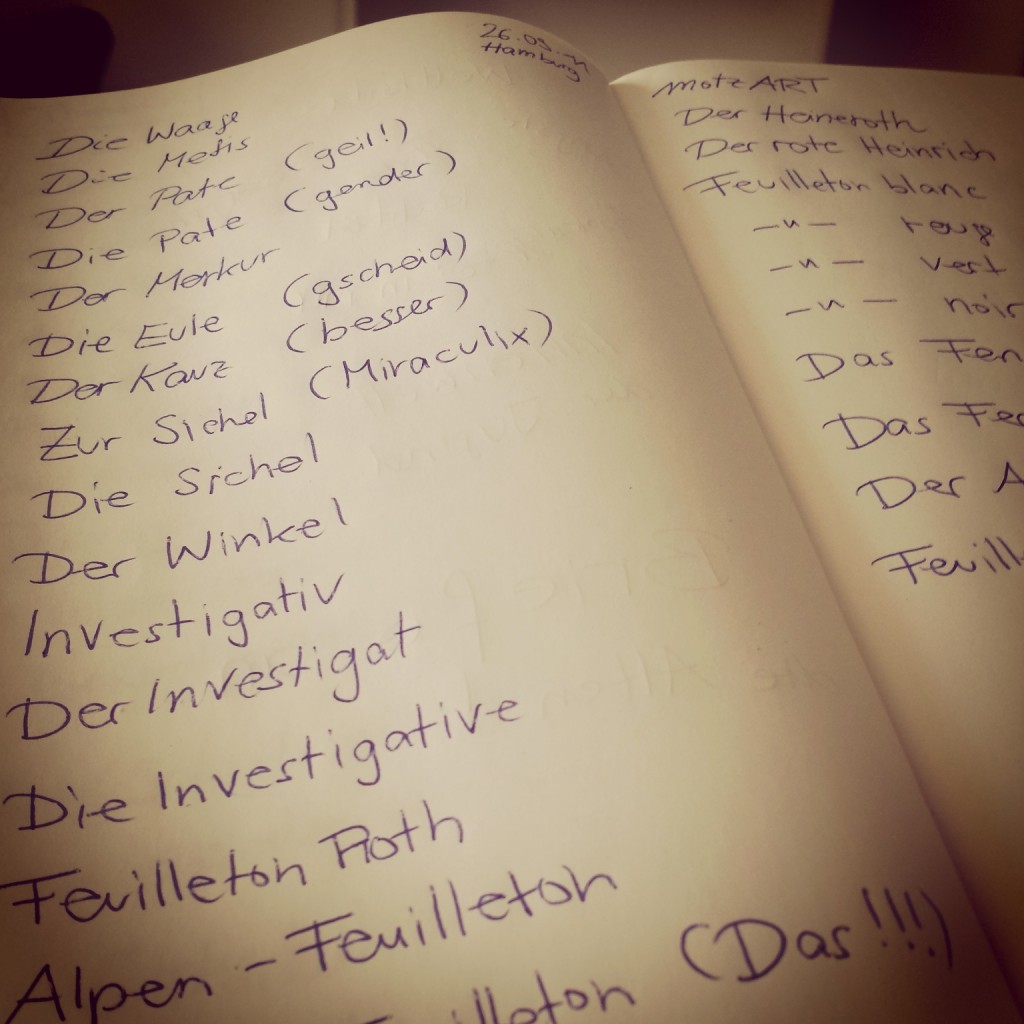 26.09.11
Hamburg
Die Waage
Die Metis
Der Pate (geil!)
Die Pate (gender)
Der Merkur
Die Eule (gscheid)
Der Kauz (besser)
Zur Sichel (Miraculix)
Die Sichel
Der Winkel
Investigativ
Der Investigat
Die Investigative
Feuilleton Roth
Alpen-Feuilleton
Feuilleton (Das!!!)
motzART
Der Heineroth
Der rote Heinrich
Feuilleton blanc
-"- rouge
-"- vert
-"- noir
Das Fen
Das
Der A
Feuill